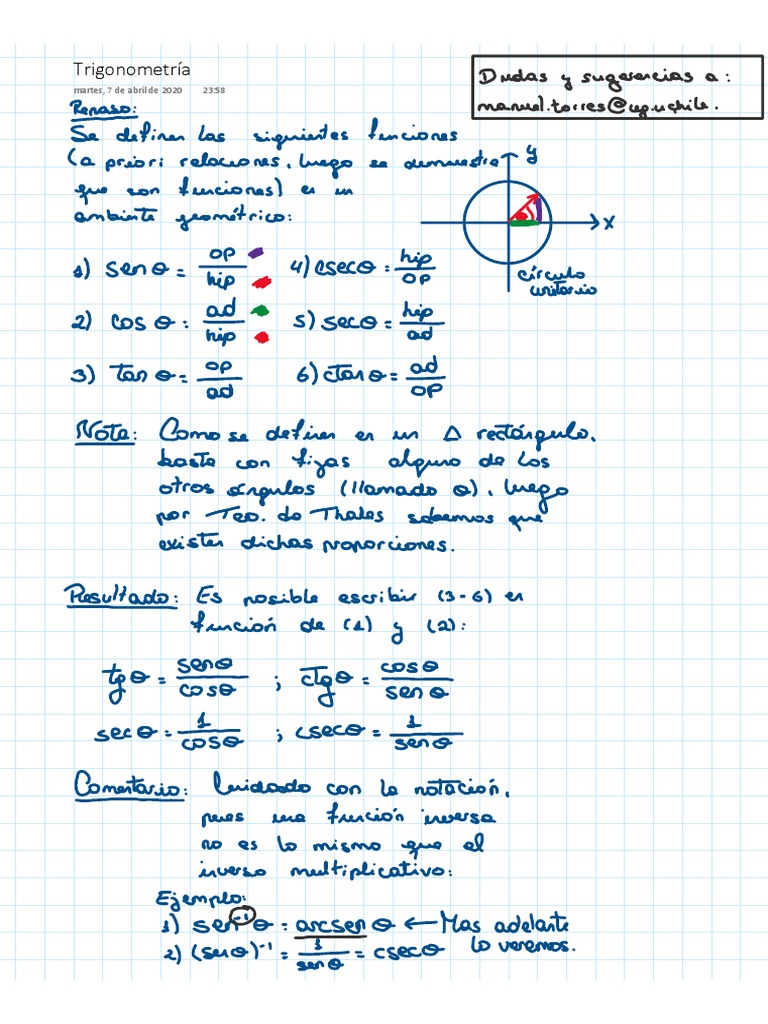 Trigonometría
martes, 7 de abril de 2020 23:58
Dudas y sugerencias a:
manuel.torres@ug.uchile.
Repaso:
Se definen las siguientes funciones
(a priori relaciones, luego se demuestra
que son funciones) en un
ambiente geométrico:
y
x
círculo
unitario
1) sen θ = op/hip
4) csec θ = hip/op
2) cos θ = ad/hip
5) sec θ = hip/ad
3) tan θ = op/ad
6) ctan θ = ad/op
Nota: Como se definen en un Δ rectángulo,
basta con fijar alguno de los
otros ángulos (llamado θ), luego
por Teo. de Thales sabemos que
existen dichas proporciones.
Resultado: Es posible escribir (3-6) en
función de (1) y (2):
tg θ = sen θ/cos θ ; ctg θ = cos θ/sen θ
sec θ = 1/cos θ ; csec θ = 1/sen θ
Comentario: Cuidado con la notación,
pues una función inversa
no es lo mismo que el
inverso multiplicativo:
Ejemplo:
1) sen⁻¹ θ = arcsen θ ← Mas adelante
lo veremos.
2) (sen θ)⁻¹ = 1/sen θ = csec θ